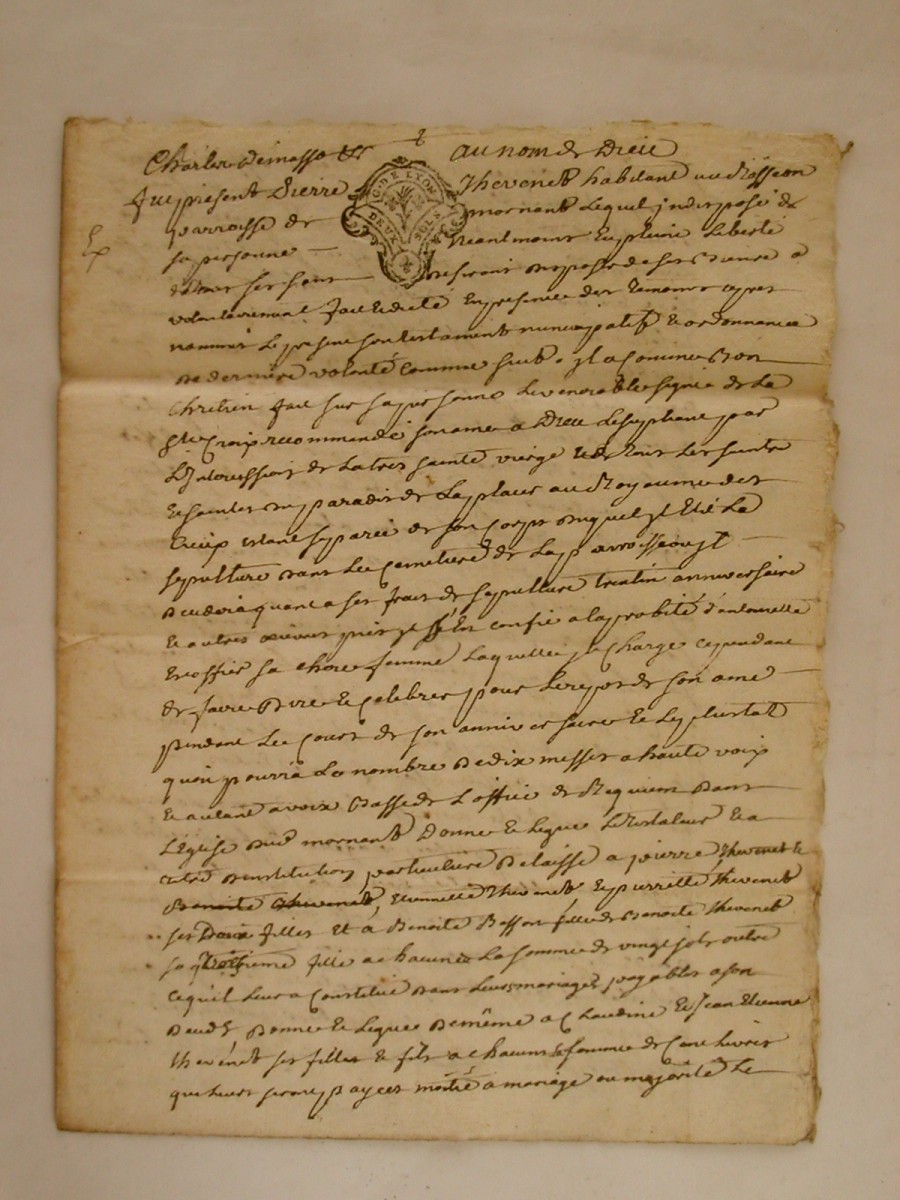 au nom de Dieu
fut présent Pierre Thevenet habitant au
parroisse de mornant Lequel indisposé de
sa personne Neantmoins En pleine Liberté
de tous ses sens desirant disposer de ses Biens a
volontairement fait Et dicté En presence des temoins apres
nommés Le present son testament nuncupatif Et ordonnance
De derniere volonté Comme suit. yl a Comme Bon
Chretien fait sur sa personne Le venerable signe de La
Ste Croix recommandé son ame a Dieu Le supliant par
L'Intercession de La tres sainte vierge Et de tous Les saints
Et saintes du paradis de La placer au Royaume des
Cieux estant separée de son Corps duquel yl Elit La
sepulture dans Le Cemetiere de La parroisse ou yl
Decedera quant a ses frais de sepulture anniversaire
Et autres yl s'En confie a la probité d'antoinette
sa chere femme Laquelle yl Charge cependant
de faire Dire Et Celebrer pour Le repos de son ame
pendant Le Cours de son anniversaire Et Le plustot
quoy pourra Le nombre De dix messes a haute voix
Et autant a voix Basse de L'office de Requiem Dans
L'Eglise dud mornant Donne Et Legue Le testateur Et a
titre D'institution particuliere Delaisse a pierre Thevenet Et
Benoite Thevenet, Etiennette Thevenet Et pierrette Thevenet
ses Deux filles Et à Benoite Basson fille de Benoite Thevenet
sa troisieme fille a chacune La somme de vingt sols outre
ce qu'il Leur a Constitué Dans Leurs mariages payables a son
Deceds Donne Et Legue De même a Claudine Et Jean Etienne
Thevenet ses filles Et fils a chacun La somme de Cent Livres
que Leurs seront payées moitié a mariage ou majorité Le
G. DE LYON
DEUX SOLS